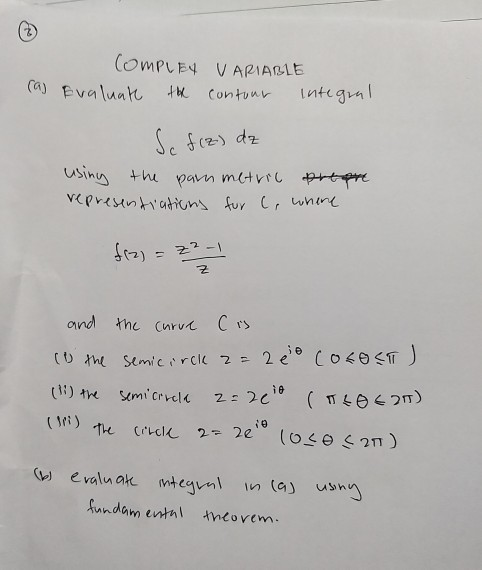 (3)
COMPLEX VARIABLE
(a) Evaluate the contour integral
∫c f(z) dz
using the parametric
representiations for C, where
f(z) = z² - 1 / z
and the curve C is
(i) the semicircle z = 2e^iθ (0≤θ≤π)
(ii) the semicircle z = 2e^iθ (π≤θ≤2π)
(iii) the circle z = 2e^iθ (0≤θ≤2π)
(b) evaluate integral in (a) using
fundamental theorem.